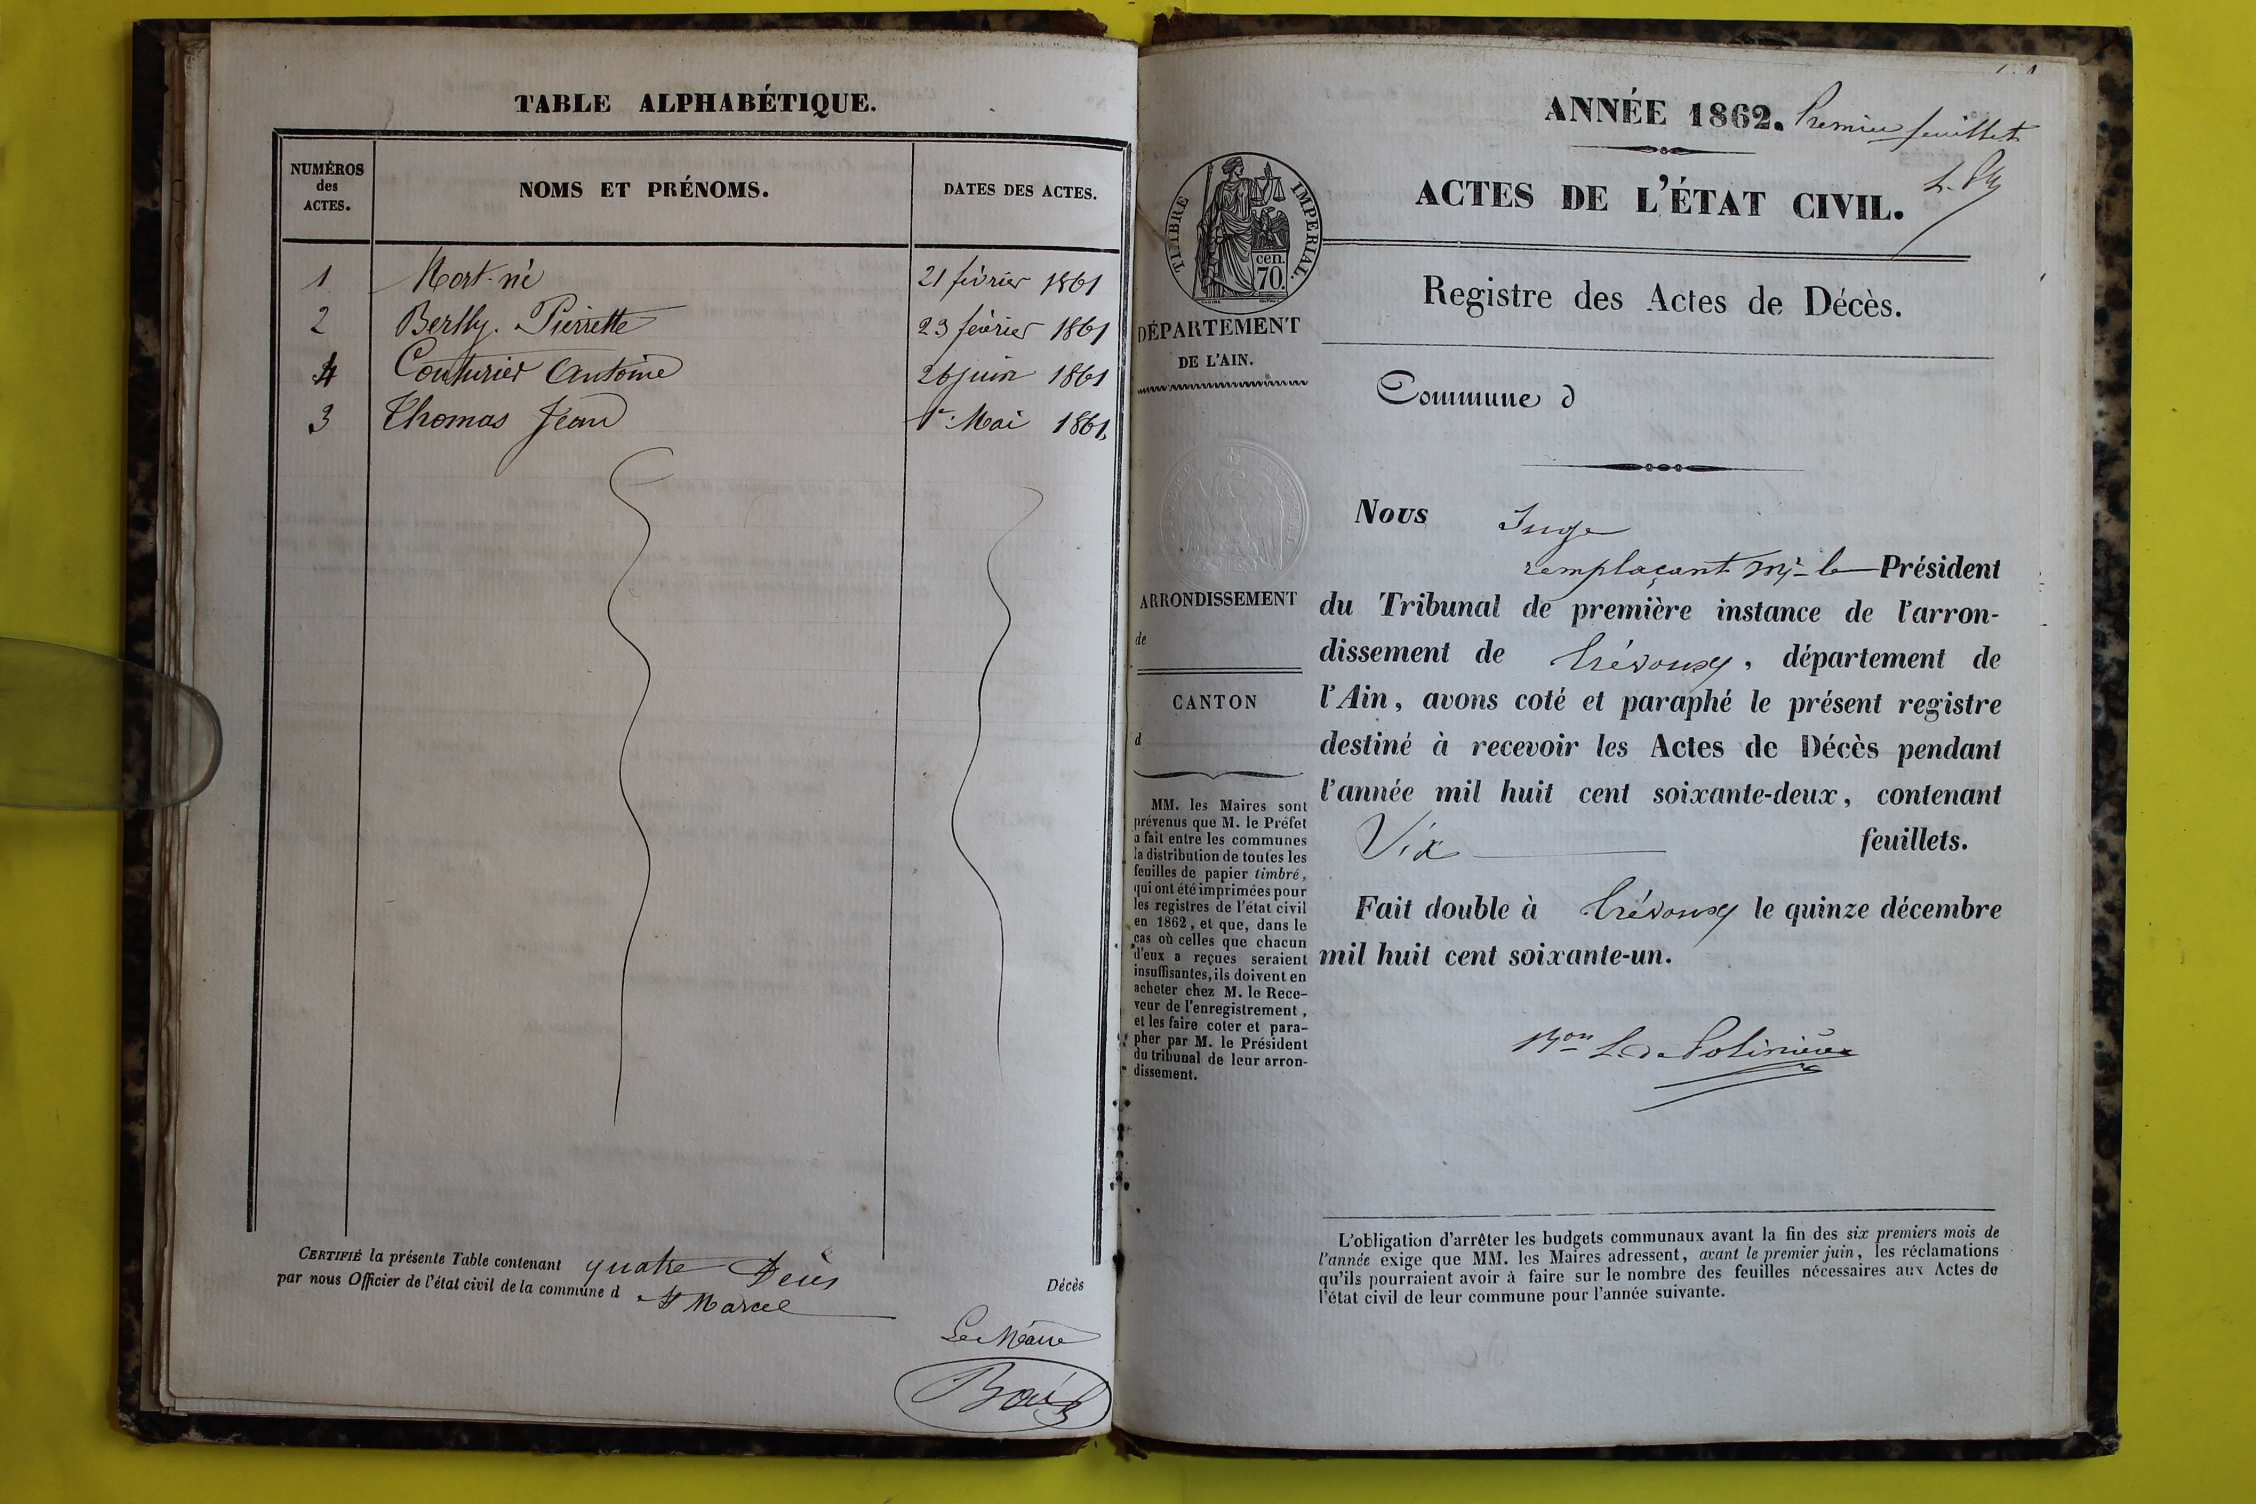 TABLE ALPHABÉTIQUE.
NUMÉROS
des
ACTES.
NOMS ET PRÉNOMS.
DATES DES ACTES.
1 Mort-né 21 février 1861
2 Berthy Pierrette 23 février 1861
4 Couturier Antoine 26 juin 1861
3 Thomas Jean 1er Mai 1861
CERTIFIÉ la présente Table contenant quatre Décès
par nous Officier de l'état civil de la commune d St Marcel
Décès
Le Maire
ANNÉE 1862. Premier feuillet
ACTES DE L'ÉTAT CIVIL.
TIMBRE IMPERIAL.
cen.
70.
Registre des Actes de Décès.
DÉPARTEMENT
DE L'AIN.
ARRONDISSEMENT
de
CANTON
d
MM. les Maires sont
prévenus que M. le Préfet
a fait entre les communes
la distribution de toutes les
feuilles de papier timbré,
qui ont été imprimées pour
les registres de l'état civil
en 1862, et que, dans le
cas où celles que chacun
d'eux a reçues seraient
insuffisantes, ils doivent en
acheter chez M. le Rece-
veur de l'enregistrement,
et les faire coter et para-
pher par M. le Président
du tribunal de leur arron-
dissement.
Commune d
Nous Juge
remplaçant Mr le Président
du Tribunal de première instance de l'arron-
dissement de Trévoux, département de
l'Ain, avons coté et paraphé le présent registre
destiné à recevoir les Actes de Décès pendant
l'année mil huit cent soixante-deux, contenant
feuillets.
Fait double à Trévoux le quinze décembre
mil huit cent soixante-un.
Bon L. de Polinière
L'obligation d'arrêter les budgets communaux avant la fin des six premiers mois de
l'année exige que MM. les Maires adressent, avant le premier juin, les réclamations
qu'ils pourraient avoir à faire sur le nombre des feuilles nécessaires aux Actes de
l'état civil de leur commune pour l'année suivante.